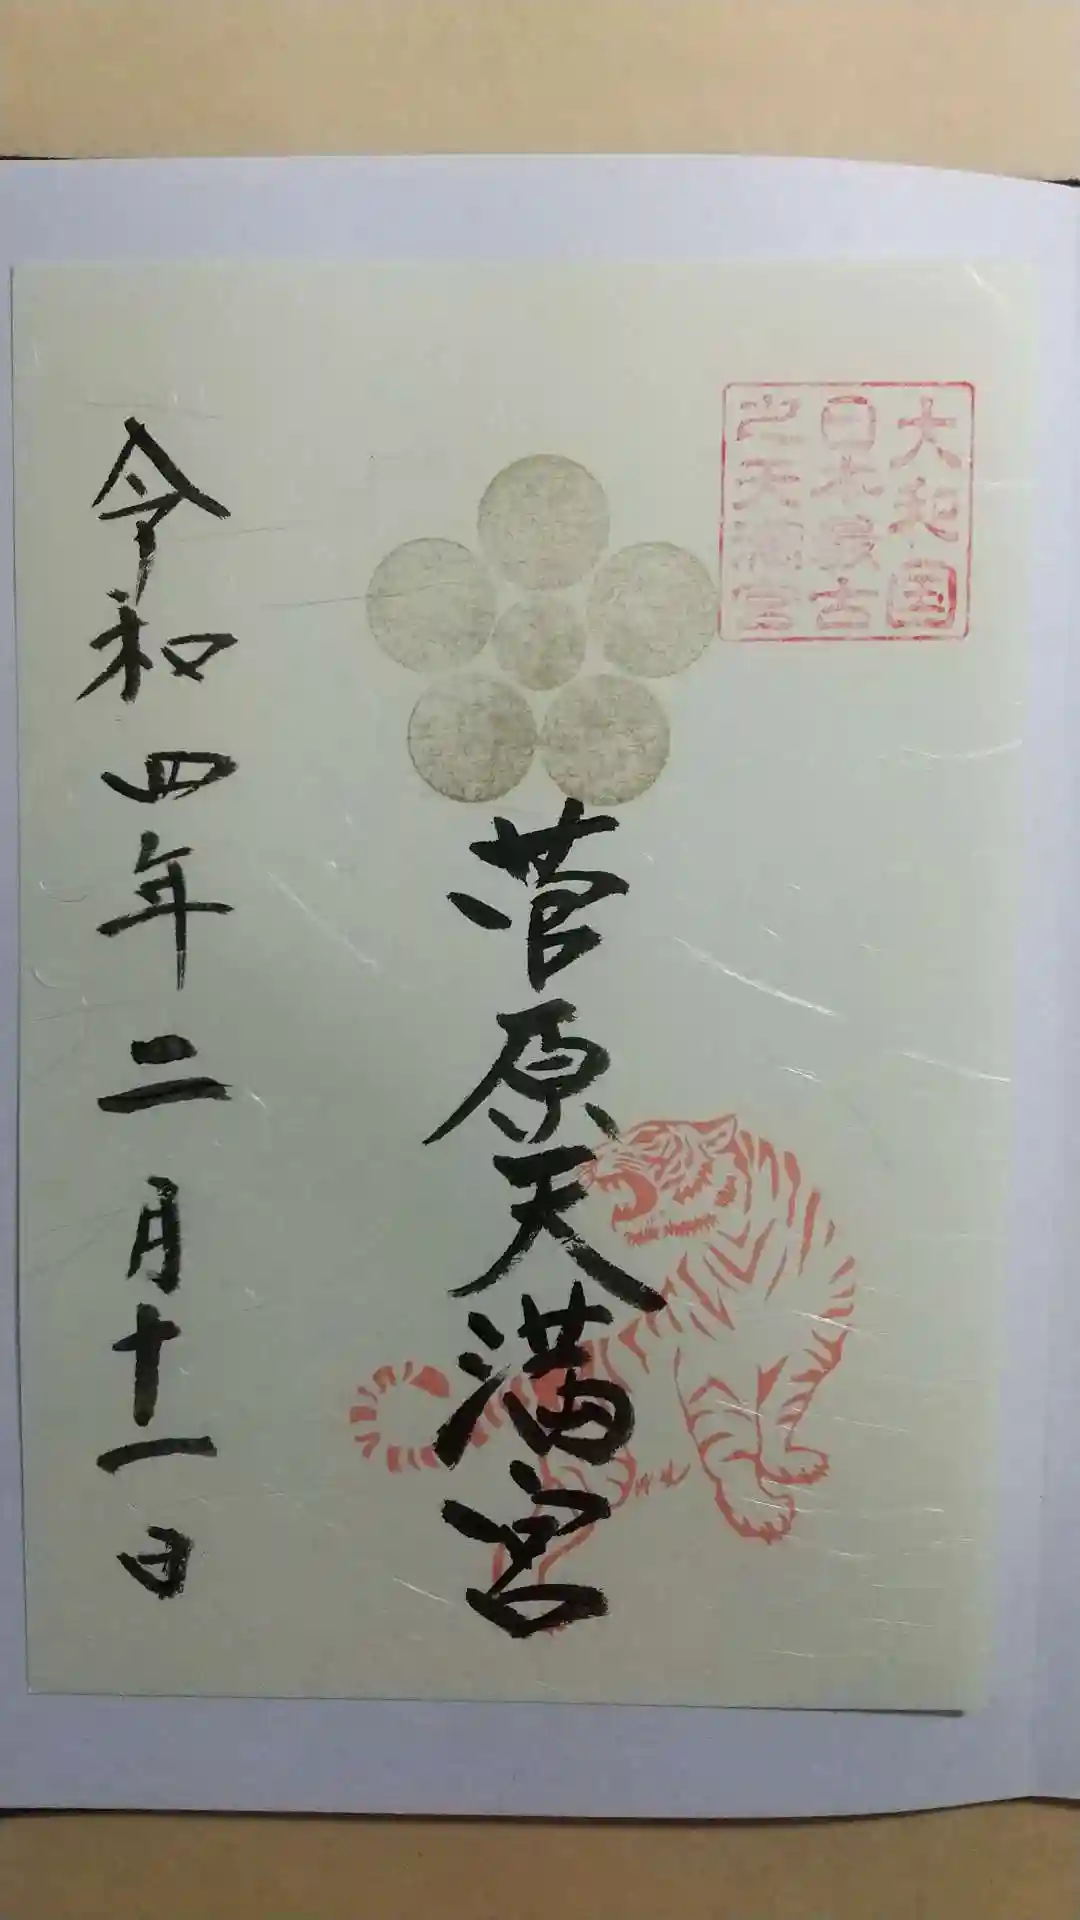 大和国
日本最古
之天満宮
菅原天満宮
令和四年二月十一日